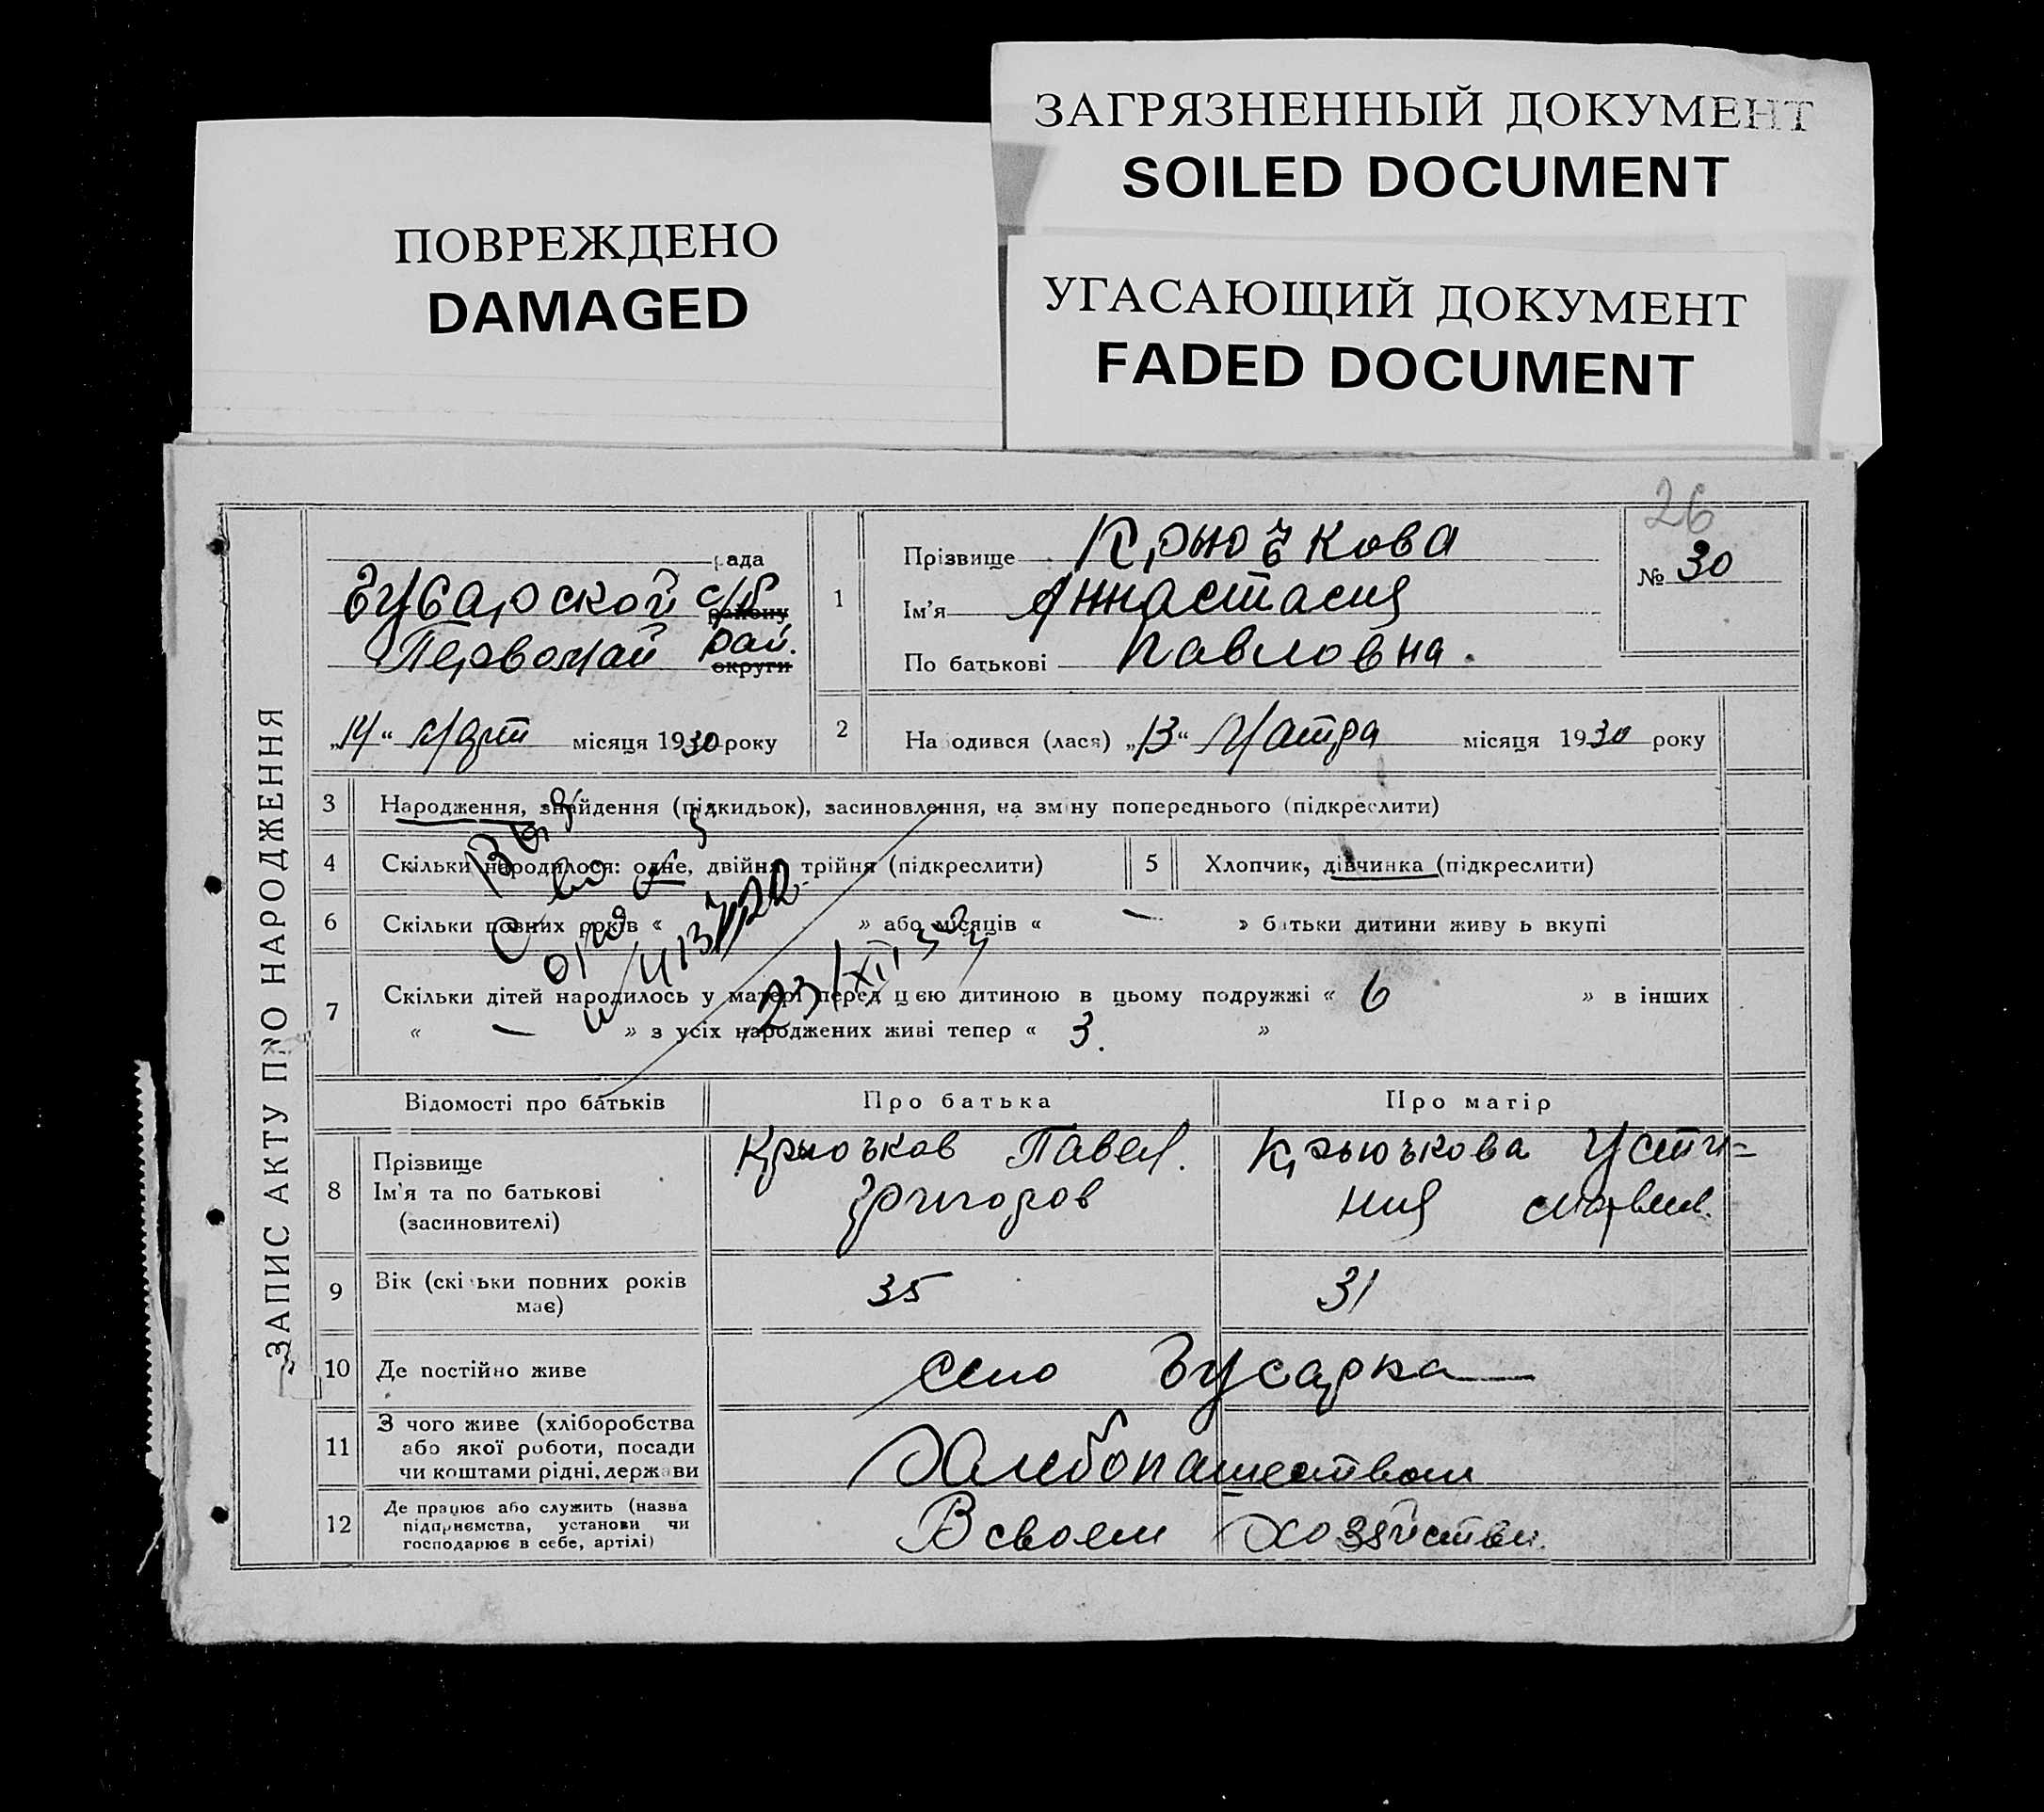 ЗАГРЯЗНЕННЫЙ ДОКУМЕНТ
SOILED DOCUMENT
ПОВРЕЖДЕНО
DAMAGED
УГАСАЮЩИЙ ДОКУМЕНТ
FADED DOCUMENT
26
№ 30
„ЗАПИС АКТУ ПРО НАРОДЖЕННЯ
рада
Гусарской с/р району
Первомай рай. округи
„14“ март місяця 1930 року
1
Прізвище Крючкова
Ім'я Аннастасия
По батькові Павловна.
2 Народився (лася) „13“ Матра місяця 1930 року
3 Народження, знайдення (підкидьок), засиновлення, на зміну попереднього (підкреслити)
4 Скільки народилося: одне, двійня, трійня (підкреслити)
5 Хлопчик, дівчинка (підкреслити)
6 Скільки повних років « » або місяців « — » батьки дитини живуть вкупі
7 Скільки дітей народилось у матері перед цією дитиною в цьому подружжі « 6 » в інших
« — » з усіх народжених живі тепер « 3. »
23/XII
Відомості про батьків Про батька Про матір
8 Прізвище
Ім'я та по батькові
(засиновителі)
Крючков Павел.
Григоров
Крьючкова Усти=
ния
9 Вік (скільки повних років
має)
35 31
10 Де постійно живе село Гусарка
11 З чого живе (хліборобства
або якої роботи, посади
чи коштами рідні, держави
Хлебопашеством
12 Де працює або служить (назва
підприємства, установи чи
господарює в себе, артілі)
В своем хозяйстве.